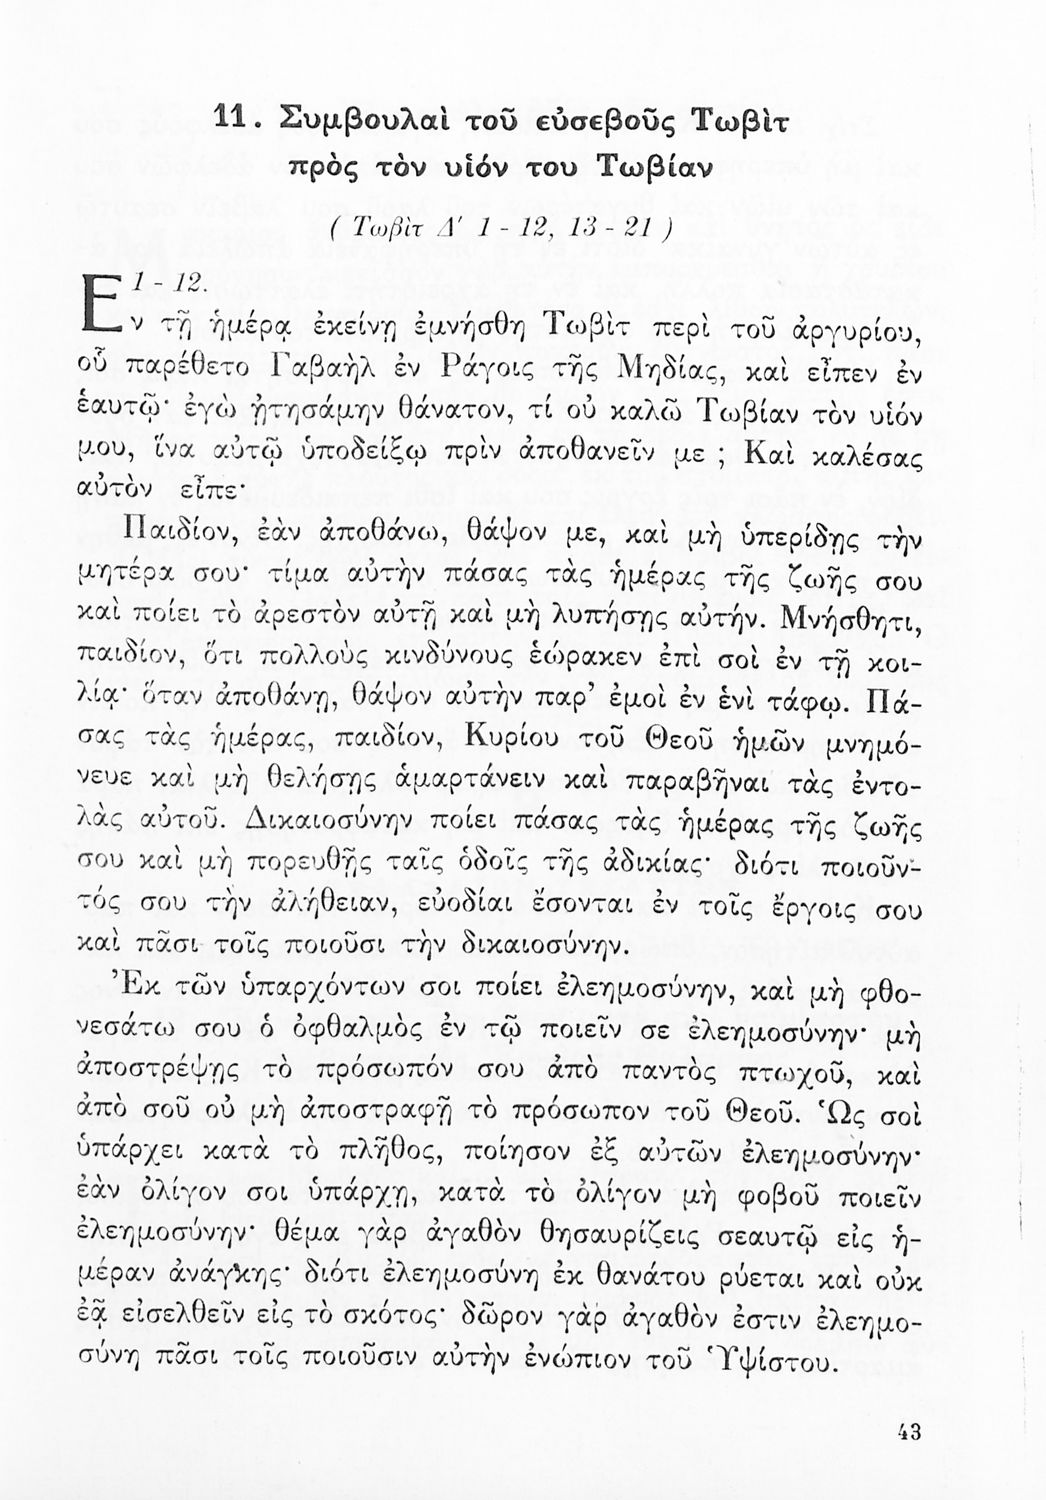 11. Συμβουλαὶ τοῦ εὐσεβοῦς Τωβὶτ
πρὸς τὸν υἱόν του Τωβίαν
( Τωβὶτ Δ' 1 - 12, 13 - 21 )
1 - 12.
Ἐν τῇ ἡμέρᾳ ἐκείνῃ ἐμνήσθη Τωβὶτ περὶ τοῦ ἀργυρίου,
οὗ παρέθετο Γαβαὴλ ἐν Ράγοις τῆς Μηδίας, καὶ εἶπεν ἐν
ἑαυτῷ· ἐγὼ ᾐτησάμην θάνατον, τί οὐ καλῶ Τωβίαν τὸν υἱόν
μου, ἵνα αὐτῷ ὑποδείξω πρὶν ἀποθανεῖν με ; Καὶ καλέσας
αὐτὸν εἶπε·
Παιδίον, ἐὰν ἀποθάνω, θάψον με, καὶ μὴ ὑπερίδῃς τὴν
μητέρα σου· τίμα αὐτὴν πάσας τὰς ἡμέρας τῆς ζωῆς σου
καὶ ποίει τὸ ἀρεστὸν αὐτῇ καὶ μὴ λυπήσῃς αὐτήν. Μνήσθητι,
παιδίον, ὅτι πολλοὺς κινδύνους ἑώρακεν ἐπὶ σοὶ ἐν τῇ κοι-
λίᾳ· ὅταν ἀποθάνῃ, θάψον αὐτὴν παρ' ἐμοὶ ἐν ἑνὶ τάφῳ. Πά-
σας τὰς ἡμέρας, παιδίον, Κυρίου τοῦ Θεοῦ ἡμῶν μνημό-
νευε καὶ μὴ θελήσῃς ἁμαρτάνειν καὶ παραβῆναι τὰς ἐντο-
λὰς αὐτοῦ. Δικαιοσύνην ποίει πάσας τὰς ἡμέρας τῆς ζωῆς
σου καὶ μὴ πορευθῇς ταῖς ὁδοῖς τῆς ἀδικίας· διότι ποιοῦν-
τός σου τὴν ἀλήθειαν, εὐοδίαι ἔσονται ἐν τοῖς ἔργοις σου
καὶ πᾶσι τοῖς ποιοῦσι τὴν δικαιοσύνην.
Ἐκ τῶν ὑπαρχόντων σοι ποίει ἐλεημοσύνην, καὶ μὴ φθο-
νεσάτω σου ὁ ὀφθαλμὸς ἐν τῷ ποιεῖν σε ἐλεημοσύνην· μὴ
ἀποστρέψῃς τὸ πρόσωπόν σου ἀπὸ παντὸς πτωχοῦ, καὶ
ἀπὸ σοῦ οὐ μὴ ἀποστραφῇ τὸ πρόσωπον τοῦ Θεοῦ. Ὡς σοὶ
ὑπάρχει κατὰ τὸ πλῆθος, ποίησον ἐξ αὐτῶν ἐλεημοσύνην·
ἐὰν ὀλίγον σοι ὑπάρχῃ, κατὰ τὸ ὀλίγον μὴ φοβοῦ ποιεῖν
ἐλεημοσύνην· θέμα γὰρ ἀγαθὸν θησαυρίζεις σεαυτῷ εἰς ἡ-
μέραν ἀνάγκης· διότι ἐλεημοσύνη ἐκ θανάτου ρύεται καὶ οὐκ
ἐᾷ εἰσελθεῖν εἰς τὸ σκότος· δῶρον γὰρ ἀγαθὸν ἐστιν ἐλεημο-
σύνη πᾶσι τοῖς ποιοῦσιν αὐτὴν ἐνώπιον τοῦ Ὑψίστου.
43